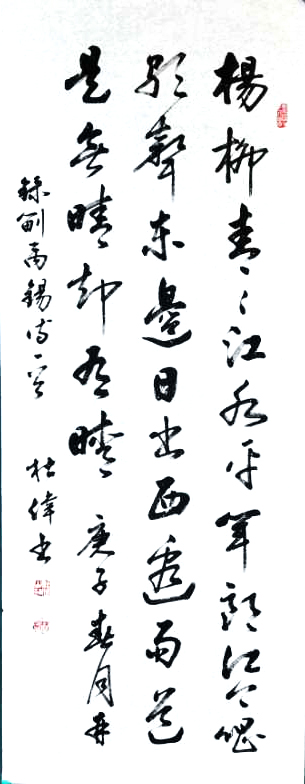 楊柳青〻江水平聞郎江上唱
歌聲東邊日出西邊雨道
是無晴却有晴 庚子春月
錄劉禹錫詩一首 杜偉書